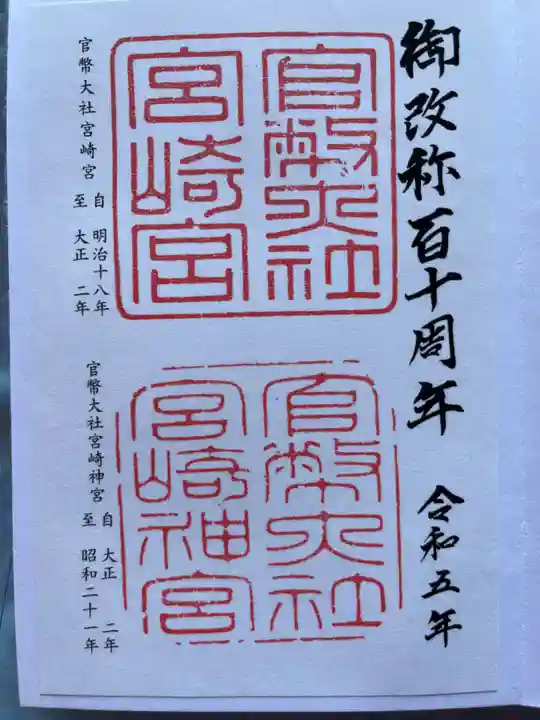 御改称百十周年　令和五年
官幣大社
宮崎宮
官幣大社宮崎宮
自　明治十八年
至　大正　二年
官幣大社
宮崎神宮
官幣大社宮崎神宮
自　大正　二年
至　昭和二十一年